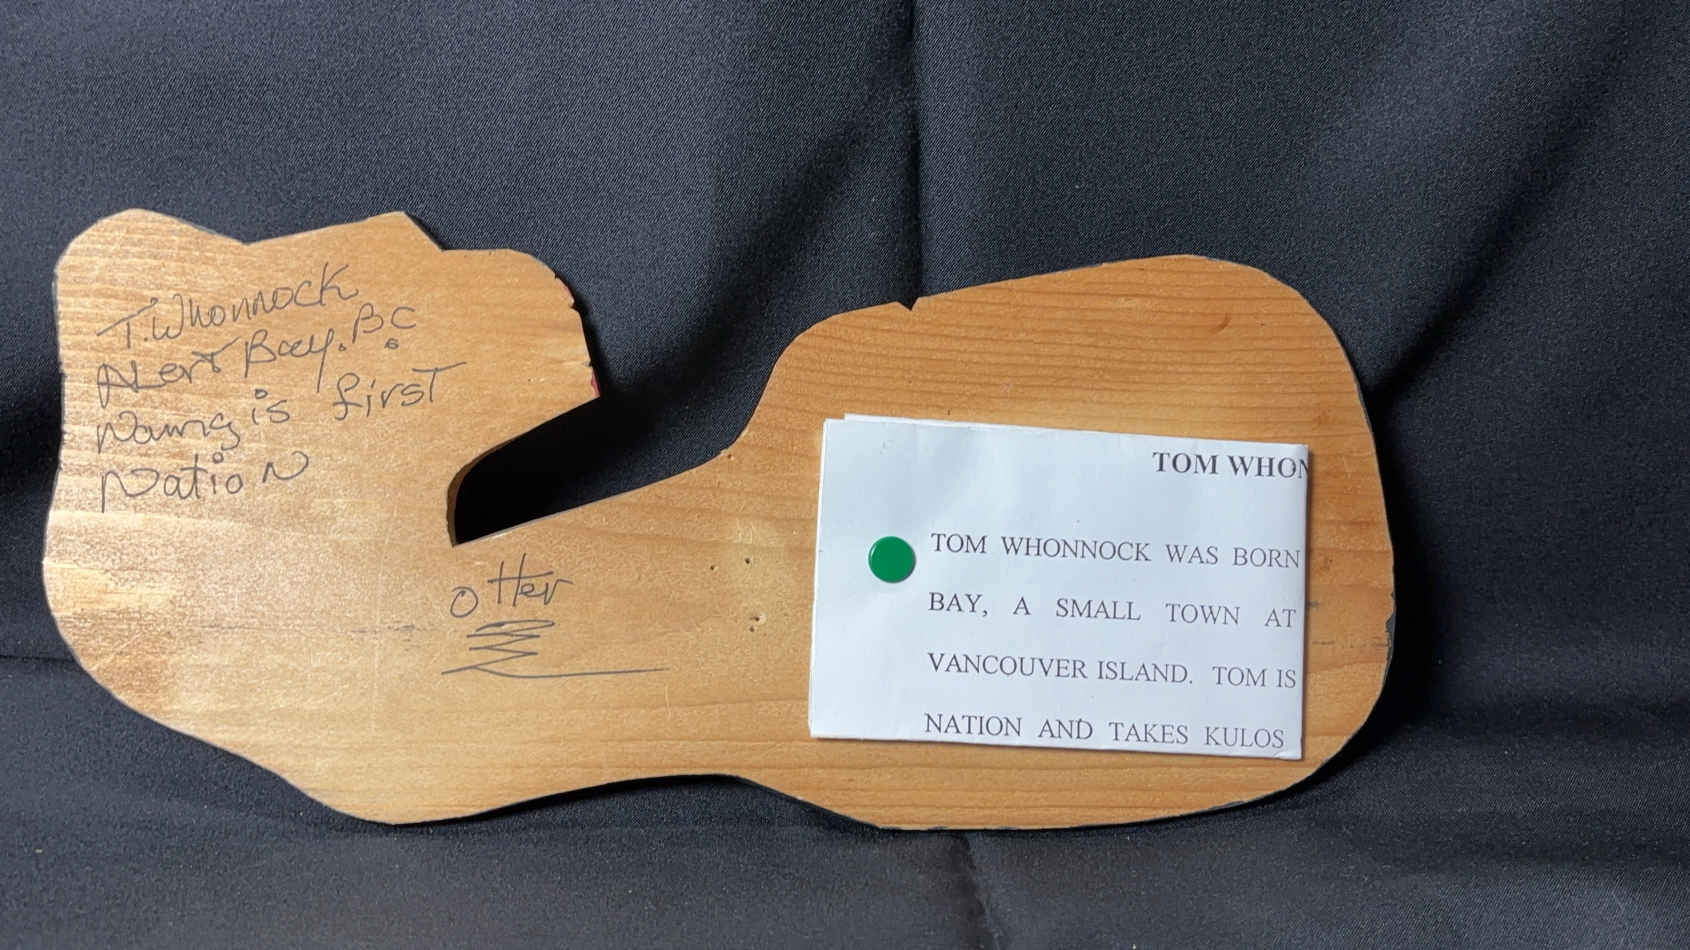 T. Whonnock
Alert Bay. B.C
Namgis first
Nation
Otter
TOM WHON
TOM WHONNOCK WAS BORN
BAY, A SMALL TOWN AT
VANCOUVER ISLAND. TOM IS
NATION AND TAKES KULOS